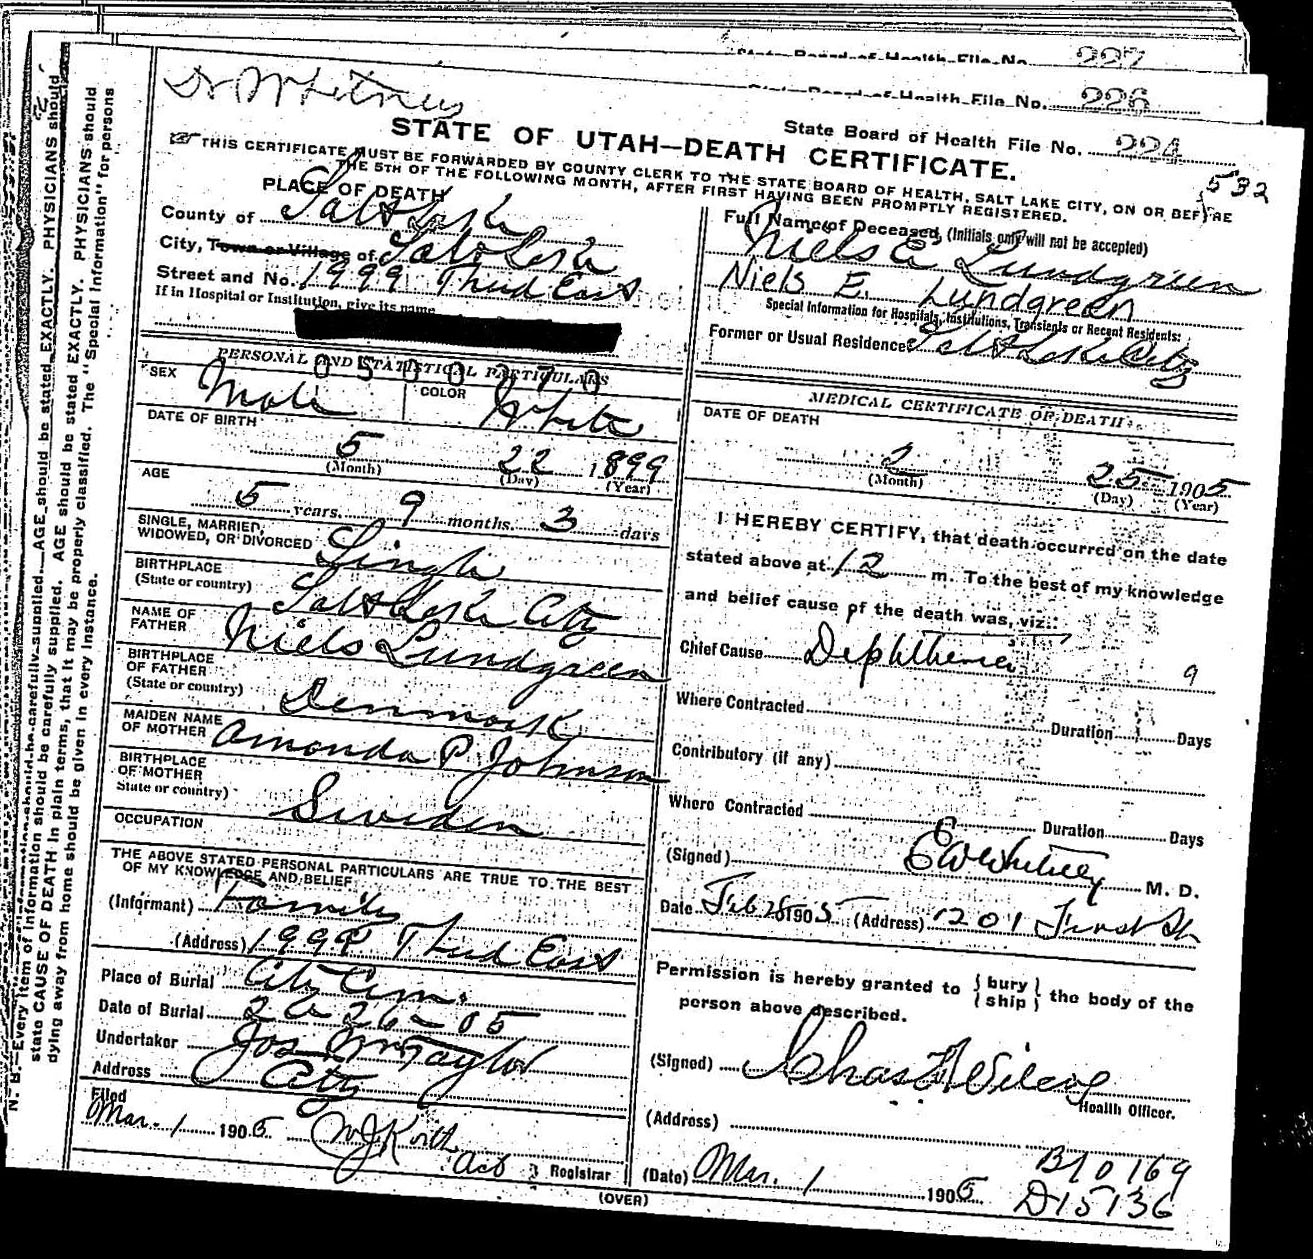 State Board of Health File No. 227
State Board of Health File No. 226
Dr Whitney
State Board of Health File No. 224
STATE OF UTAH—DEATH CERTIFICATE.
532
THIS CERTIFICATE MUST BE FORWARDED BY COUNTY CLERK TO THE STATE BOARD OF HEALTH, SALT LAKE CITY, ON OR BEFORE
THE 5TH OF THE FOLLOWING MONTH, AFTER FIRST HAVING BEEN PROMPTLY REGISTERED.
PLACE OF DEATH
County of Salt Lake
City, Town or Village of Salt Lake
Street and No. 1999 Third East
If in Hospital or Institution, give its name
Full Name of Deceased, (Initials only will not be accepted)
Niels E Lundgreen
Niels E. Lundgreen
Special Information for Hospitals, Institutions, Transients or Recent Residents:
Former or Usual Residence Salt Lake City
PERSONAL AND STATISTICAL PARTICULARS
SEX Male
COLOR White
DATE OF BIRTH
5 22 1899
(Month) (Day) (Year)
AGE
5 years 9 months 3 days
SINGLE, MARRIED,
WIDOWED, OR DIVORCED Single
BIRTHPLACE
(State or country) Salt Lake City
NAME OF
FATHER Niels Lundgreen
BIRTHPLACE
OF FATHER
(State or country) Denmark
MAIDEN NAME
OF MOTHER Amanda P. Johnson
BIRTHPLACE
OF MOTHER
State or country) Sweden
OCCUPATION
THE ABOVE STATED PERSONAL PARTICULARS ARE TRUE TO THE BEST
OF MY KNOWLEDGE AND BELIEF
(Informant) Family
(Address) 1999 Third East
Place of Burial City Cem.
Date of Burial 26-05
Undertaker Jos Wm Taylor
Address City
Filed
Mar. 1 1905
Registrar
MEDICAL CERTIFICATE OF DEATH
DATE OF DEATH
2 25 1905
(Month) (Day) (Year)
I HEREBY CERTIFY, that death occurred on the date
stated above at 12 m. To the best of my knowledge
and belief cause of the death was, viz:
Chief Cause Diphtheria 9
Where Contracted Duration Days
Contributory (if any)
Where Contracted Duration Days
(Signed) E W Whitney M. D.
Date Feb 28 1905 (Address) 1201 First St
Permission is hereby granted to { bury } the body of the
{ ship }
person above described.
(Signed) Chas F Wilcox
Health Officer.
(Address)
(Date) Mar. 1 1905
B10169
D15136
(OVER)
N. B.—Every item of information should be carefully supplied. AGE should be stated EXACTLY. PHYSICIANS should
state CAUSE OF DEATH in plain terms, that it may be properly classified. The "Special Information" for persons
dying away from home should be given in every instance.